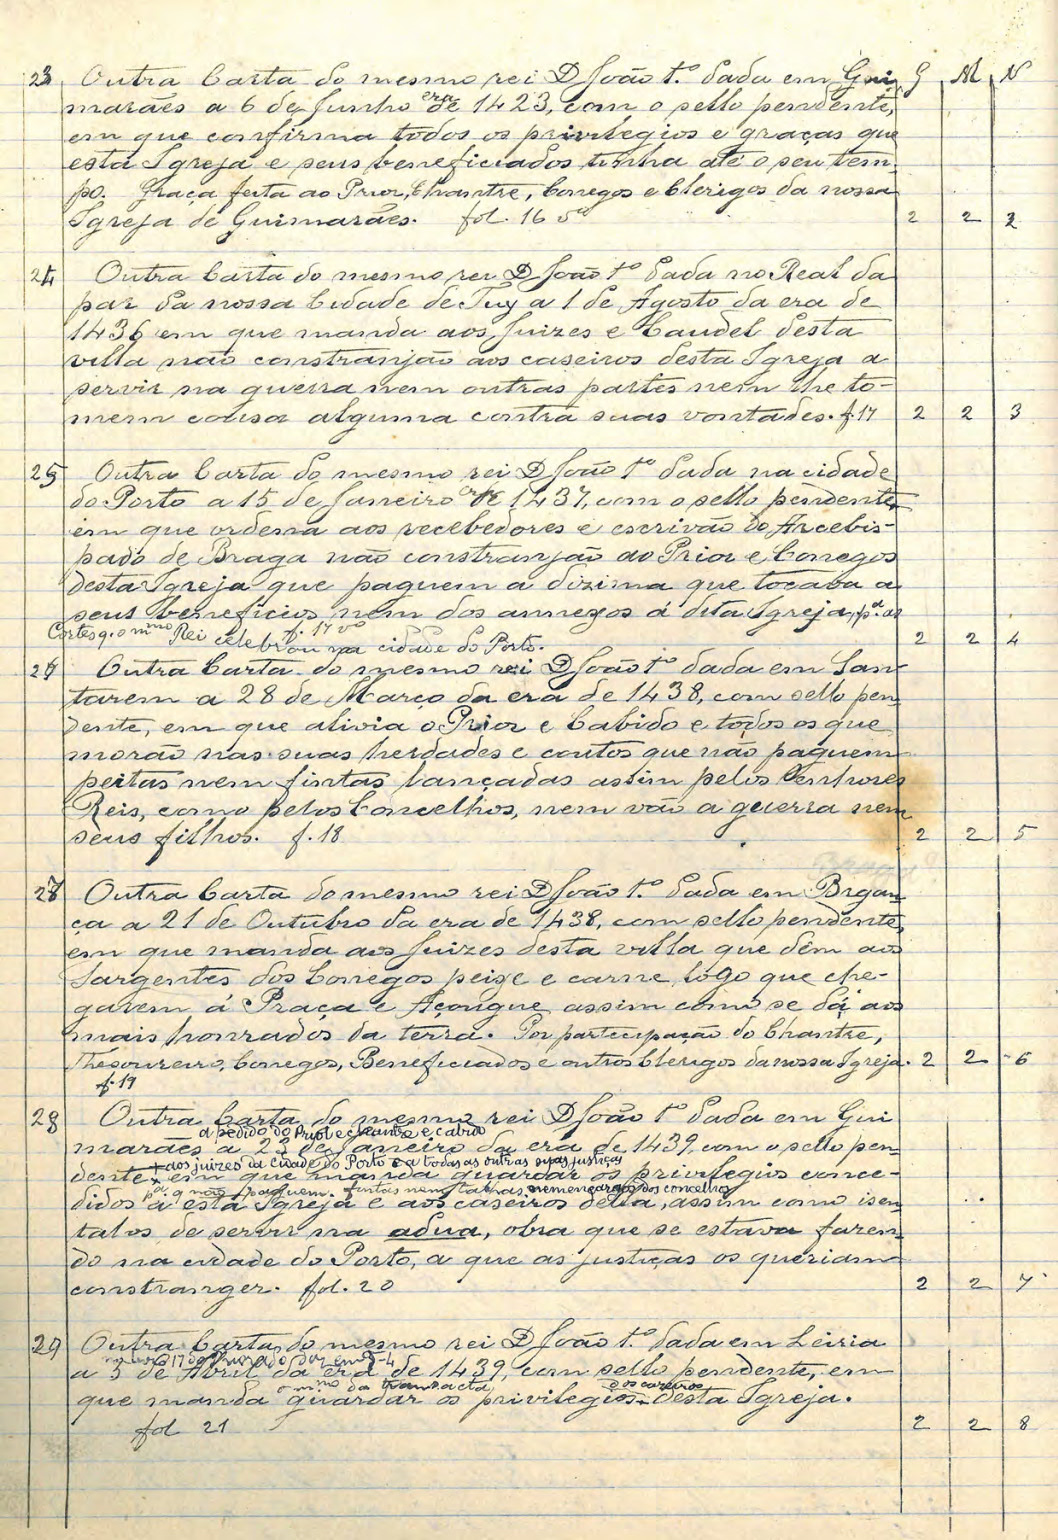 G M N
23 Outra Carta do mesmo rei D João 1.º dada em Gui
marães a 6 de Junho era de 1423, com o sello pendente,
em que confirma todos os privilegios e graças que
esta Igreja e seus beneficiados tinha até o seu tem-
po. Graça feita ao Prior, Chantre, Conegos e Clerigos da nossa
Igreja de Guimarães. fol. 16 vº 2 2 2
24 Outra Carta do mesmo rei D João 1º dada no Real da
par da nossa Cidade de Tuy a 1 de Agosto da era de
1436 em que manda aos Juizes e Caudel desta
villa não constranjão aos caseiros desta Igreja a
servir na guerra nem outras partes nem lhe to-
mem cousa alguma contra suas vontades. f. 17 2 2 3
25 Outra Carta do mesmo rei D João 1º dada na cidade
do Porto a 15 de Janeiro era de 1437, com o sello pendente,
em que ordena aos recebedores e escrivão do Arcebis-
pado de Braga não constranjão ao Prior e Conegos
desta Igreja que paguem a dizima que tocava a
seus beneficios, nem dos annexos á dita Igreja, pª as
Cortes q. o mmo Rei celebrou na cidade do Porto. f. 17 vº 2 2 4
Outra Carta do mesmo rei D João 1º dada em San-
tarem a 28 de Março da era de 1438, com sello pen
dente, em que alivia o Prior e Cabido e todos os que
morão nas suas herdades e coutos que não paguem
peitas nem fintas lançadas assim pelos Senhores
Reis, como pelos Concelhos, nem vão a guerra nem
seus filhos. f. 18 2 2 5
27 Outra Carta do mesmo rei D João 1º dada em Bragan-
ça a 21 de Outubro da era de 1438, com sello pendente,
em que manda aos Juizes desta villa que dêm aos
Sargentes dos Conegos peixe e carne, lôgo que che-
garem á Praça e Açougue assim como se dá aos
mais honrados da terra. Por participação do Chantre,
Thesoureiro, Conegos, Beneficiados e outros Clerigos da nossa Igreja. 2 2 6
f. 19
28 Outra Carta do mesmo rei D João 1º dada em Gui
a pedido do Priol e chantre e cabido
marães a 23 de Janeiro da era de 1439, com o sello pen-
+ aos juizes da cidade do Porto e a todas as outras suas justiças
dente + em que manda guardar os privilegios conce-
pª. q não paguem fintas nem talhas nem encargos dos concelhos
didos a esta Igreja e aos caseiros della, assim como isen
talos de servir na adua, obra que se estava fazen-
do na cidade do Porto, a que as justiças os queriam
constranger. fol. 20 2 2 7
29 Outra Carta do mesmo rei D João 1º dada em Leiria
a 3 de Abril da era de 1439, com sello pendente, em
o mmo da transacta dos caseiros
que manda guardar os privilegios desta Igreja.
fol 21 2 2 8